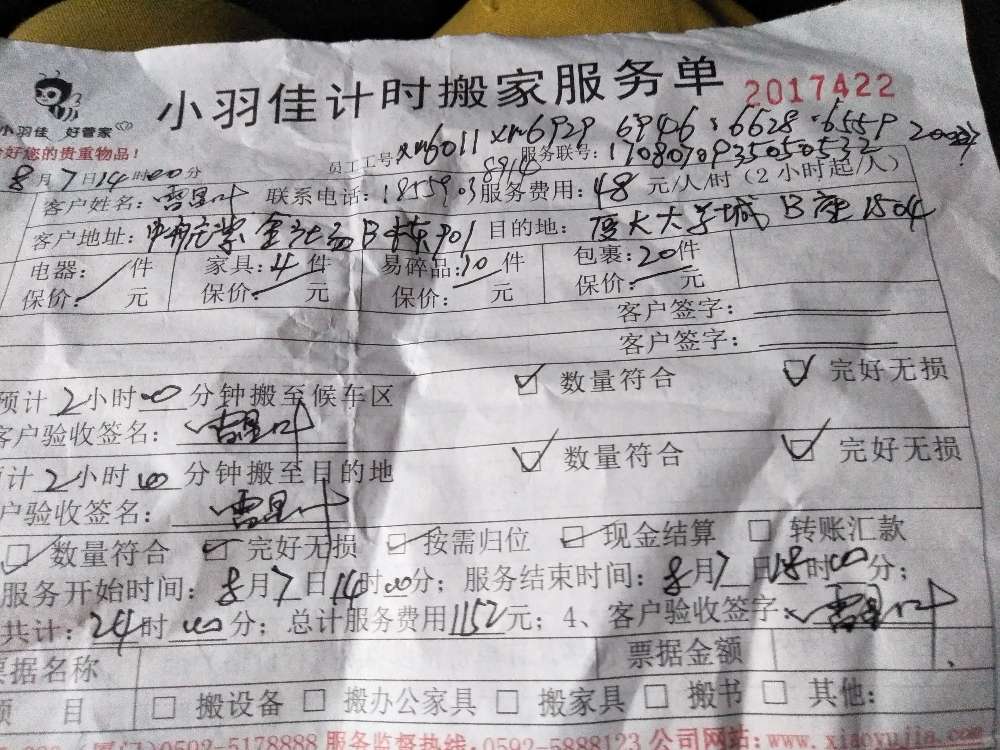 小羽佳计时搬家服务单 2017422
小羽佳 好管家
好您的贵重物品!
员工工号 xm6011 xm6929 6946、6628、6559
8914 服务联号:1708070935050532
8月7日14时00分
客户姓名: 联系电话:1855903 服务费用:48元/人/时(2小时起/人)
客户地址: B栋901 目的地:厦大大学城B座1504
电器:/件 家具:4件 易碎品:10件 包裹:20件
保价:/元 保价:/元 保价: 元 保价:/元
客户签字:
客户签字:
预计2小时00分钟搬至候车区 ☑数量符合 ☑完好无损
客户验收签名:
计2小时00分钟搬至目的地 ☑数量符合 ☑完好无损
户验收签名:
☑数量符合 ☑完好无损 ☑按需归位 ☑现金结算 □转账汇款
服务开始时间:8月7日14时00分;服务结束时间:8月7日18时00分;
共计:24时00分;总计服务费用1152元;4、客户验收签字:
票据名称 票据金额
项 目 □搬设备 □搬办公家具 □搬家具 □搬书 □其他:
(厦门)0592-5178888 服务监督热线:0592-5888123 公司网站:www.xiaoyujia.com